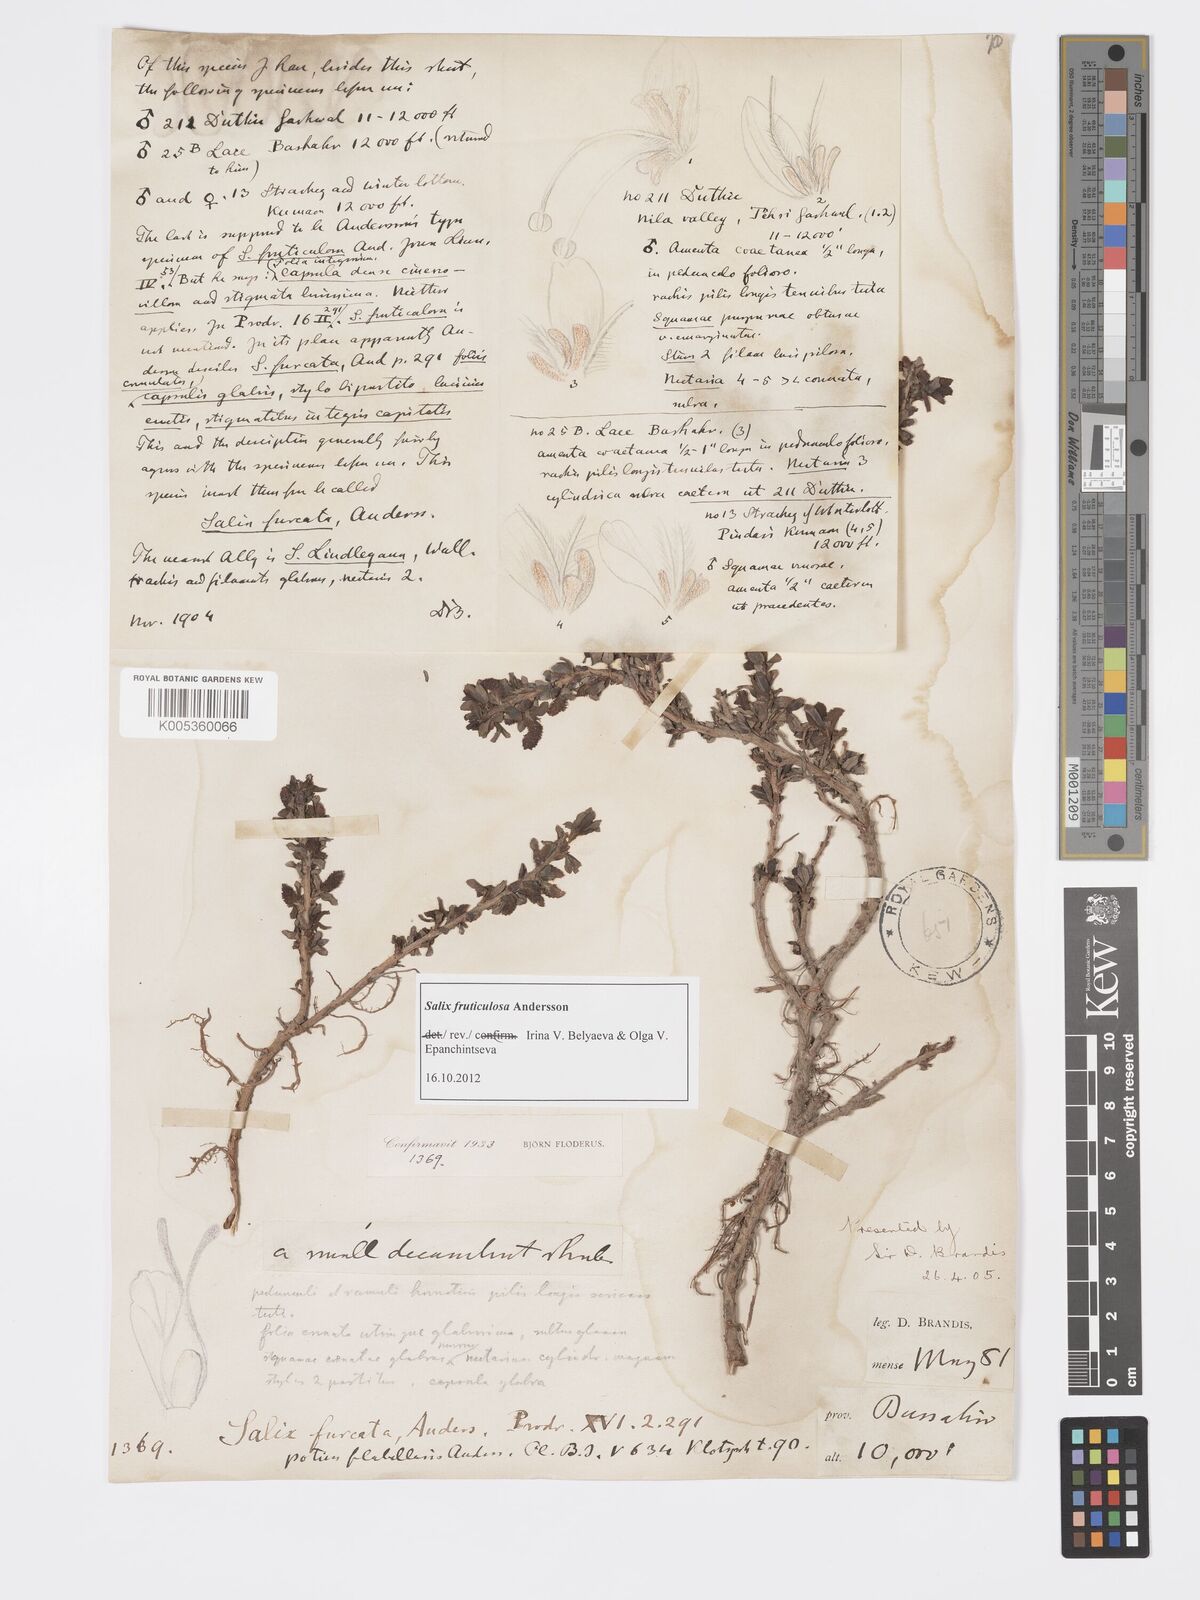 Of this species I have, besides this sheet,
the following specimens before me:
♂ 211 Duthie Garhwal 11-12000 ft
♂ 25B Lace Bashahr 12000 ft. (returned
to him)
♂ and ♀. 13 Strachey and Winterbottom.
Kumaon 12000 ft.
The last is supposed to be Anderssons type
specimen of S. fruticulosa And. Journ Linn.
IV. 53 But he says: folia integerrima. Capsula dense cinereo-
villosa and stigmata minima. Neither
applies. In Prodr. 16 II 291 S. fruticulosa is
not mentioned. In its place apparently An-
dersson describes S. furcata, And p. 291 foliis
crenulatis,
capsulis glabris, stylo bipartito, laciniis
erectis, stigmatibus integris capitatis
This and the description generally fairly
agrees with the specimens before me. This
species must therefore be called
Salix furcata, Anderss.
The nearest Ally is S. Lindleyana, Wall.
rachis and filaments glabrous, nectaries 2.
Nov. 1904 DB.
1
2
no 211 Duthie
Nila valley, Tehri Garhwal. (1.2)
11-12000'
♂. Amenta coaetanea 1/2" longa,
in pedunculo folioso.
rachis pilis longis tenuibus tecta
Squamae purpureae obtusae
v. emarginatae.
Stam 2 filam basi pilosa.
Nectaria 4-5 connata,
rubra.
3
no 25 B. Lace Bashahr. (3)
amenta coaetanea 1/2-1" longa in pedunculo folioso.
rachis pilis longis tenuibus tecta. Nectaria 3
cylindrica rubra caetera ut 211 Duthie.
no 13 Strachey & Winterbott.
Pindari Kumaon (4,5)
12000 ft.
♂ Squamae
amenta 1/2" caeterum
ut praecedentes.
4
5
ROYAL BOTANIC GARDENS KEW
K005360066
ROYAL GARDENS
KEW
651
Salix fruticulosa Andersson
det./ rev./ confirm. Irina V. Belyaeva & Olga V.
Epanchintseva
16.10.2012
Confirmavit 1933 BJÖRN FLODERUS.
1369.
a small decumbent shrub
pedunculi et ramuli pilis longis sericeis
tecti.
folia crenata utrinque glaberrima, subtus glauca
squamae glabrae nectarium cylindr. magnum
stylus 2 partitus, capsula glabra
Presented by
Sir D. Brandis
26.4.05.
leg. D. BRANDIS.
mense May 81
prov. Bussahir
alt. 10,000'
1369. Salix furcata, Anders. Prodr. XVI.2.291
potius flabellaris Anders. Fl. B.I. V 634 Klotzsch t.90.
inches
OSC COLOR CONTROL PATCHES
Don Williams
M001209
centimeters
Kew
Royal Botanic Gardens
0 1 2 3 4 5 6 7 8 9 10
CM
copyright reserved